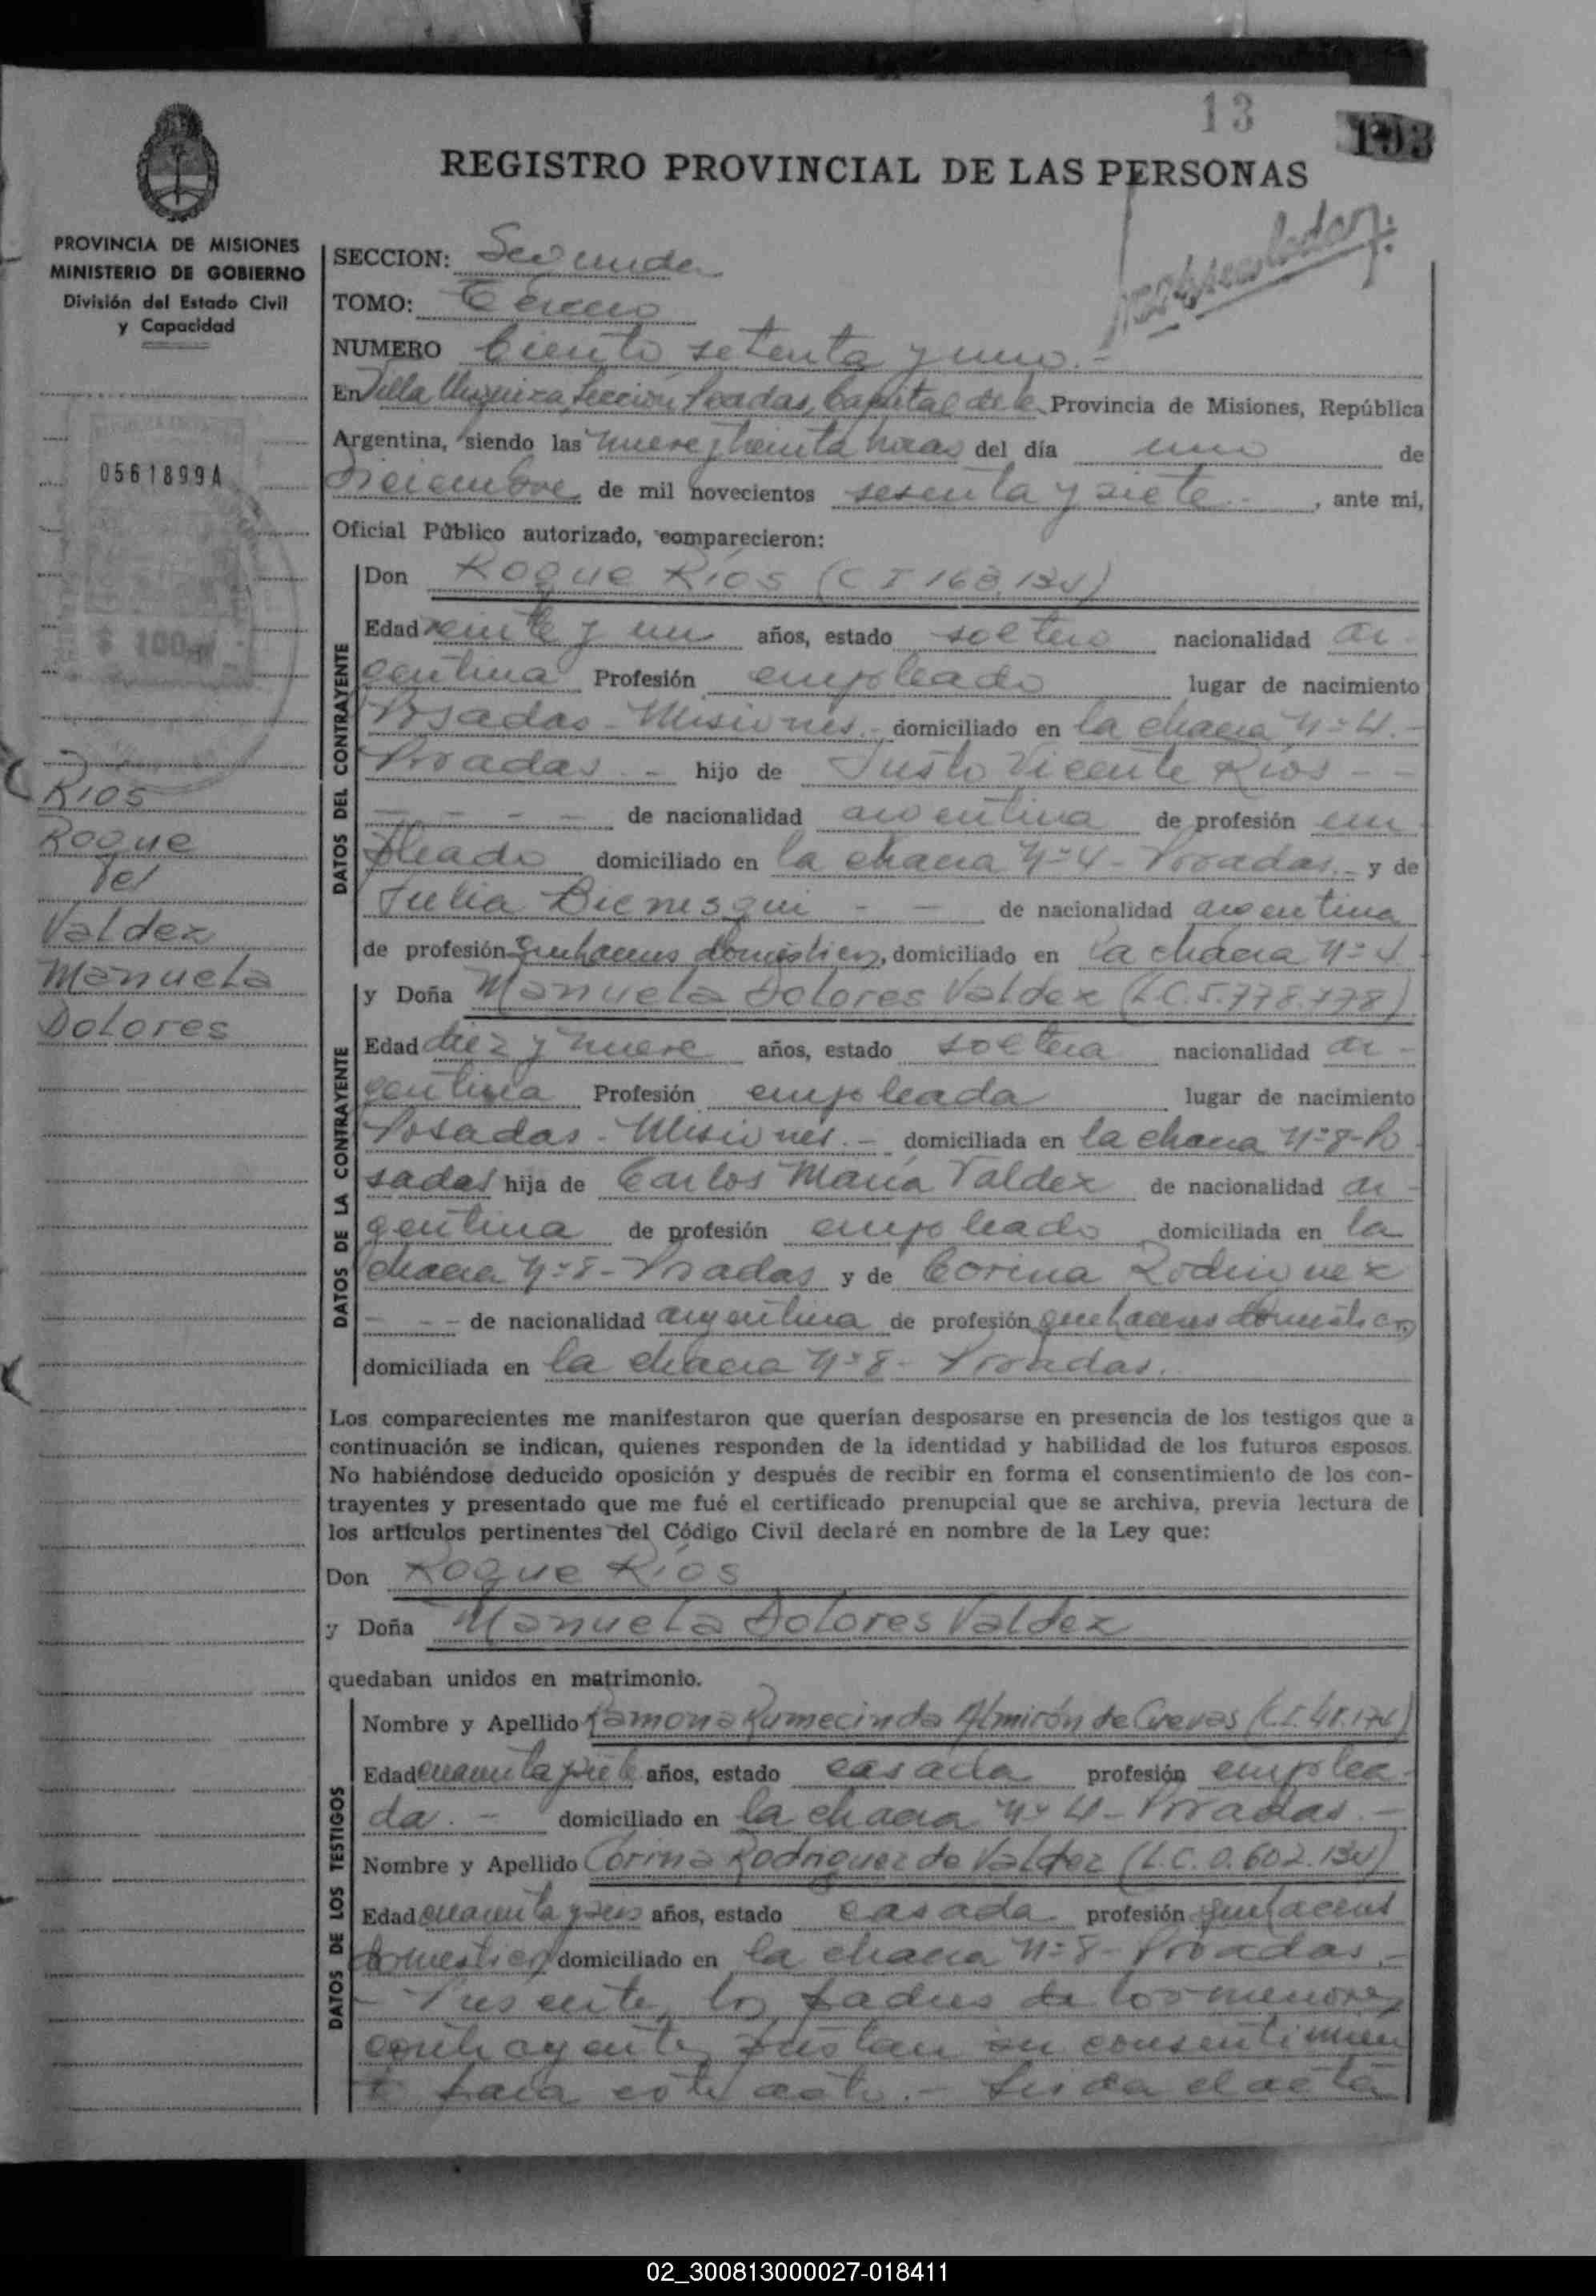 13
193
REGISTRO PROVINCIAL DE LAS PERSONAS
PROVINCIA DE MISIONES
MINISTERIO DE GOBIERNO
División del Estado Civil
y Capacidad
0561899A
$ 100
Rios
Roque
Valdez
Manuela
Dolores
SECCION: Segunda
TOMO: Tercero
NUMERO Ciento setenta y uno.-
En Villa Urquiza, Sección Posadas, Capital de la Provincia de Misiones, República
Argentina, siendo las nueve y treinta horas del día uno de
Diciembre de mil novecientos sesenta y siete - , ante mi,
Oficial Público autorizado, comparecieron:
DATOS DEL CONTRAYENTE
Don Roque Ríos (C I 168.134)
Edad veinte y un años, estado soltero nacionalidad ar-
gentina Profesión empleado lugar de nacimiento
Posadas - Misiones.- domiciliado en la chacra Nº 4.-
Posadas - hijo de Justo Vicente Ríos - -
- - - - de nacionalidad argentina de profesión em
pleado domiciliado en la chacra Nº 4 - Posadas.- y de
Julia - - de nacionalidad argentina
de profesión quehaceres domésticos, domiciliado en la chacra Nº 4
DATOS DE LA CONTRAYENTE
y Doña Manuela Dolores Valdez (L.C.5.778.778)
Edad diez y nueve años, estado soltera nacionalidad ar-
gentina Profesión empleada lugar de nacimiento
Posadas - Misiones.- domiciliada en la chacra Nº 8 - Po
sadas hija de Carlos María Valdez de nacionalidad ar-
gentina de profesión empleado domiciliada en la
chacra Nº 8 - Posadas y de Corina Rodriguez
- - - de nacionalidad argentina de profesión quehaceres domésticos
domiciliada en la chacra Nº 8 - Posadas.
Los comparecientes me manifestaron que querían desposarse en presencia de los testigos que a
continuación se indican, quienes responden de la identidad y habilidad de los futuros esposos.
No habiéndose deducido oposición y después de recibir en forma el consentimiento de los con-
trayentes y presentado que me fué el certificado prenupcial que se archiva, previa lectura de
los artículos pertinentes del Código Civil declaré en nombre de la Ley que:
Don Roque Ríos
y Doña Manuela Dolores Valdez
quedaban unidos en matrimonio.
DATOS DE LOS TESTIGOS
Nombre y Apellido Ramona Rumecinda Almirón de Cuevas
Edad cuarenta y siete años, estado casada profesión emplea-
da. - domiciliado en la chacra Nº 4 - Posadas.-
Nombre y Apellido Corina Rodriguez de Valdez (L.C.0.602.134)
Edad cuarenta y seis años, estado casada profesión quehaceres
domésticos domiciliado en la chacra Nº 8 - Posadas.-
- Presente, los padres de los menores
contrayentes prestan su consentimien
to para este acto.- Leida el acta
02_300813000027-018411